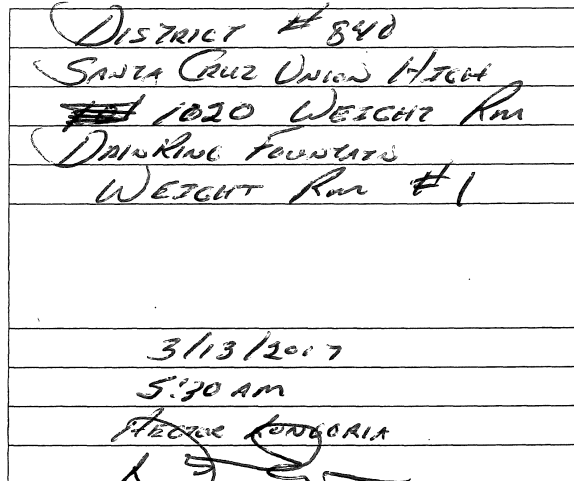 DISTRICT # 840
SANTA CRUZ UNION HIGH
1020 WEIGHT RM
DRINKING FOUNTAIN
WEIGHT RM #1
3/13/2017
5:30 AM
HECTOR LONGORIA